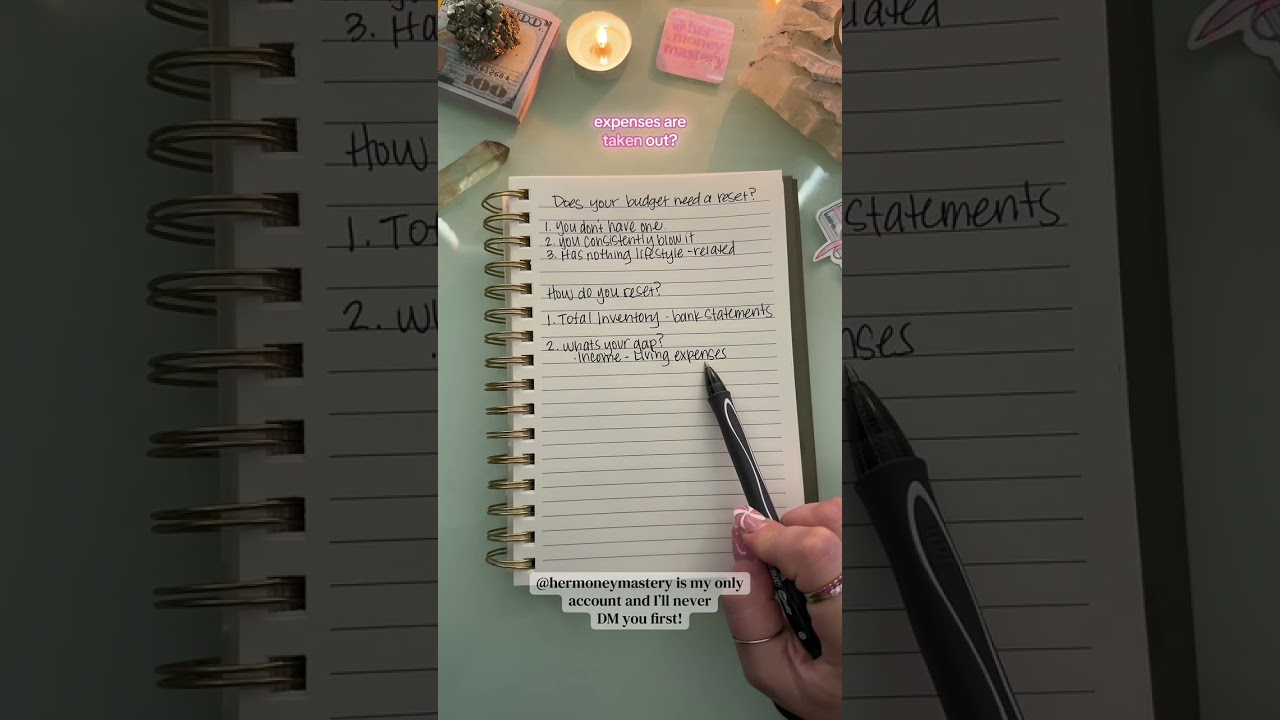 3. Ha
How
1. To
2. W
100
@her
money
mastery
expenses are
taken out?
Does your budget need a reset?
1. you dont have one
2. you consistently blow it
3. Has nothing lifestyle-related
How do you reset?
1. Total Inventory - bank statements
2. Whats your gap?
· Income - Living expenses
@hermoneymastery is my only
account and I'll never
DM you first!
elated
statements
nses